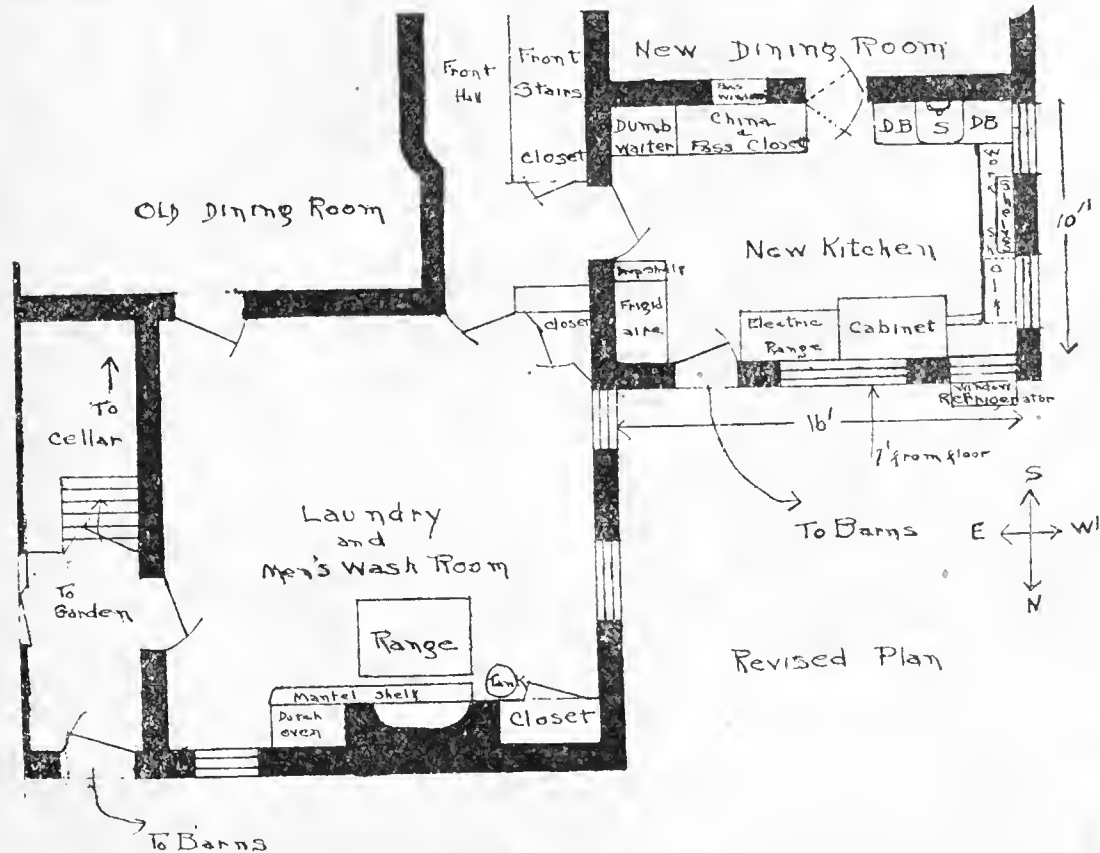 Front
Hall
Front
Stairs
closet
New Dining Room
Pass
Window
Dumb
waiter
China
&
Pass Closet
DB
S
DB
Work Shelf
Shelves
10'
OLD Dining Room
New Kitchen
Drop shelf
Frigid
aire
Electric
Range
Cabinet
closet
Window
Refrigerator
16'
7' from floor
To
Cellar
To Barns
S
E
W
N
Laundry
and
Men's Wash Room
To
Garden
Range
Revised Plan
Tank
Mantel shelf
Dutch
oven
Closet
To Barns